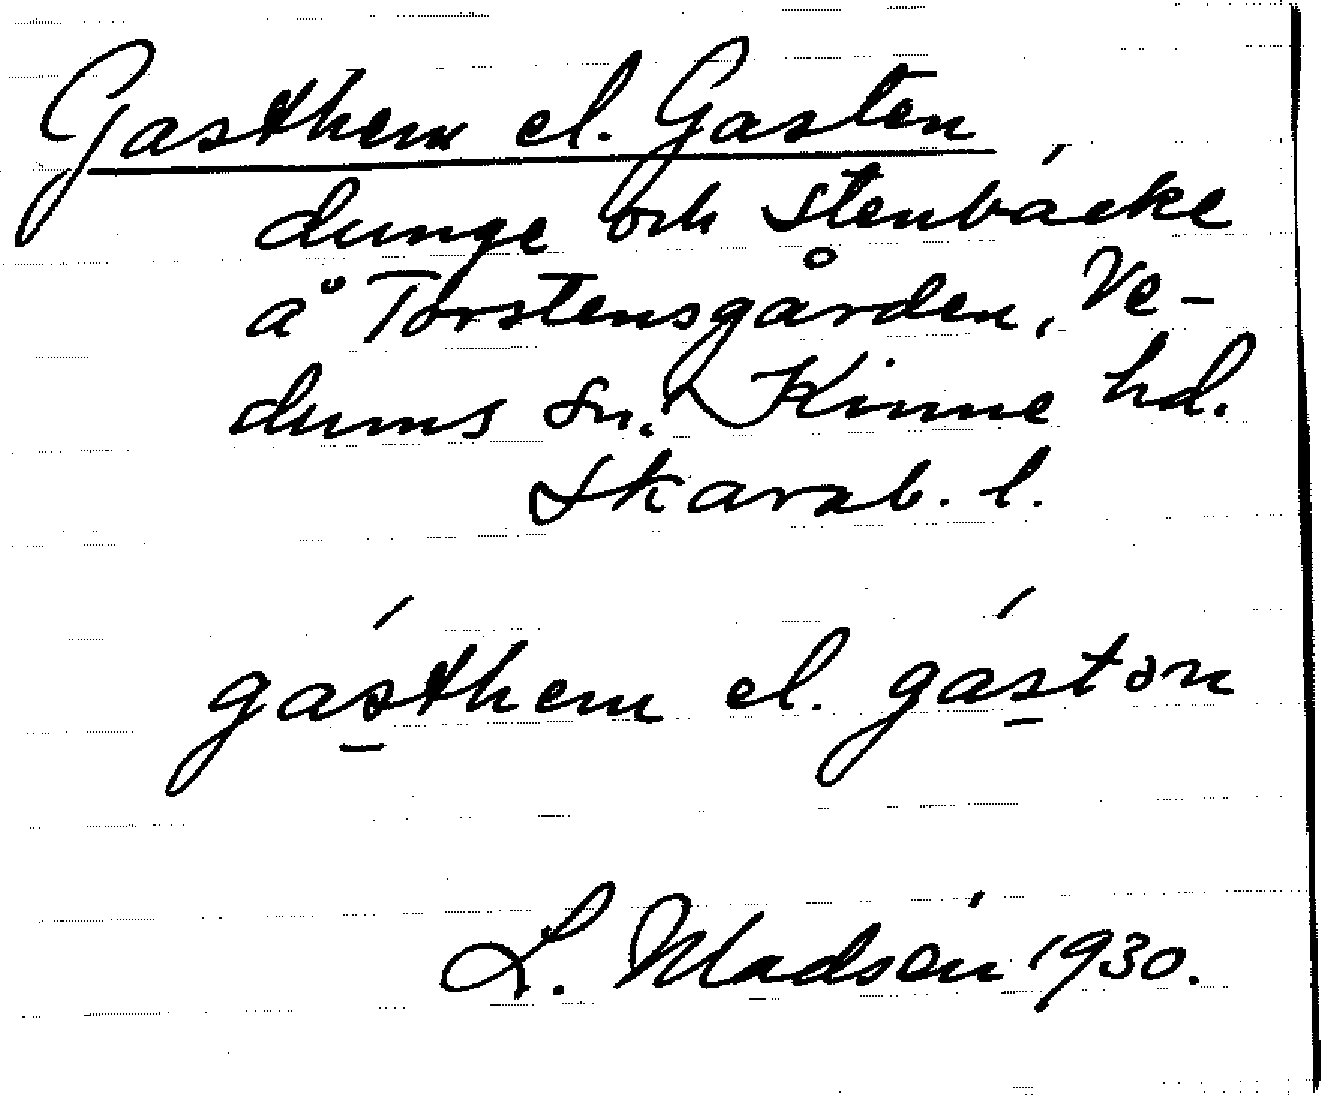 Gasthem el. Gasten
dunge och stenbacke
å Torstensgården, Ve-
dums sn. Kinne hd.
Skarab. l.
gásthem el. gástən
L. Madsén 1930.